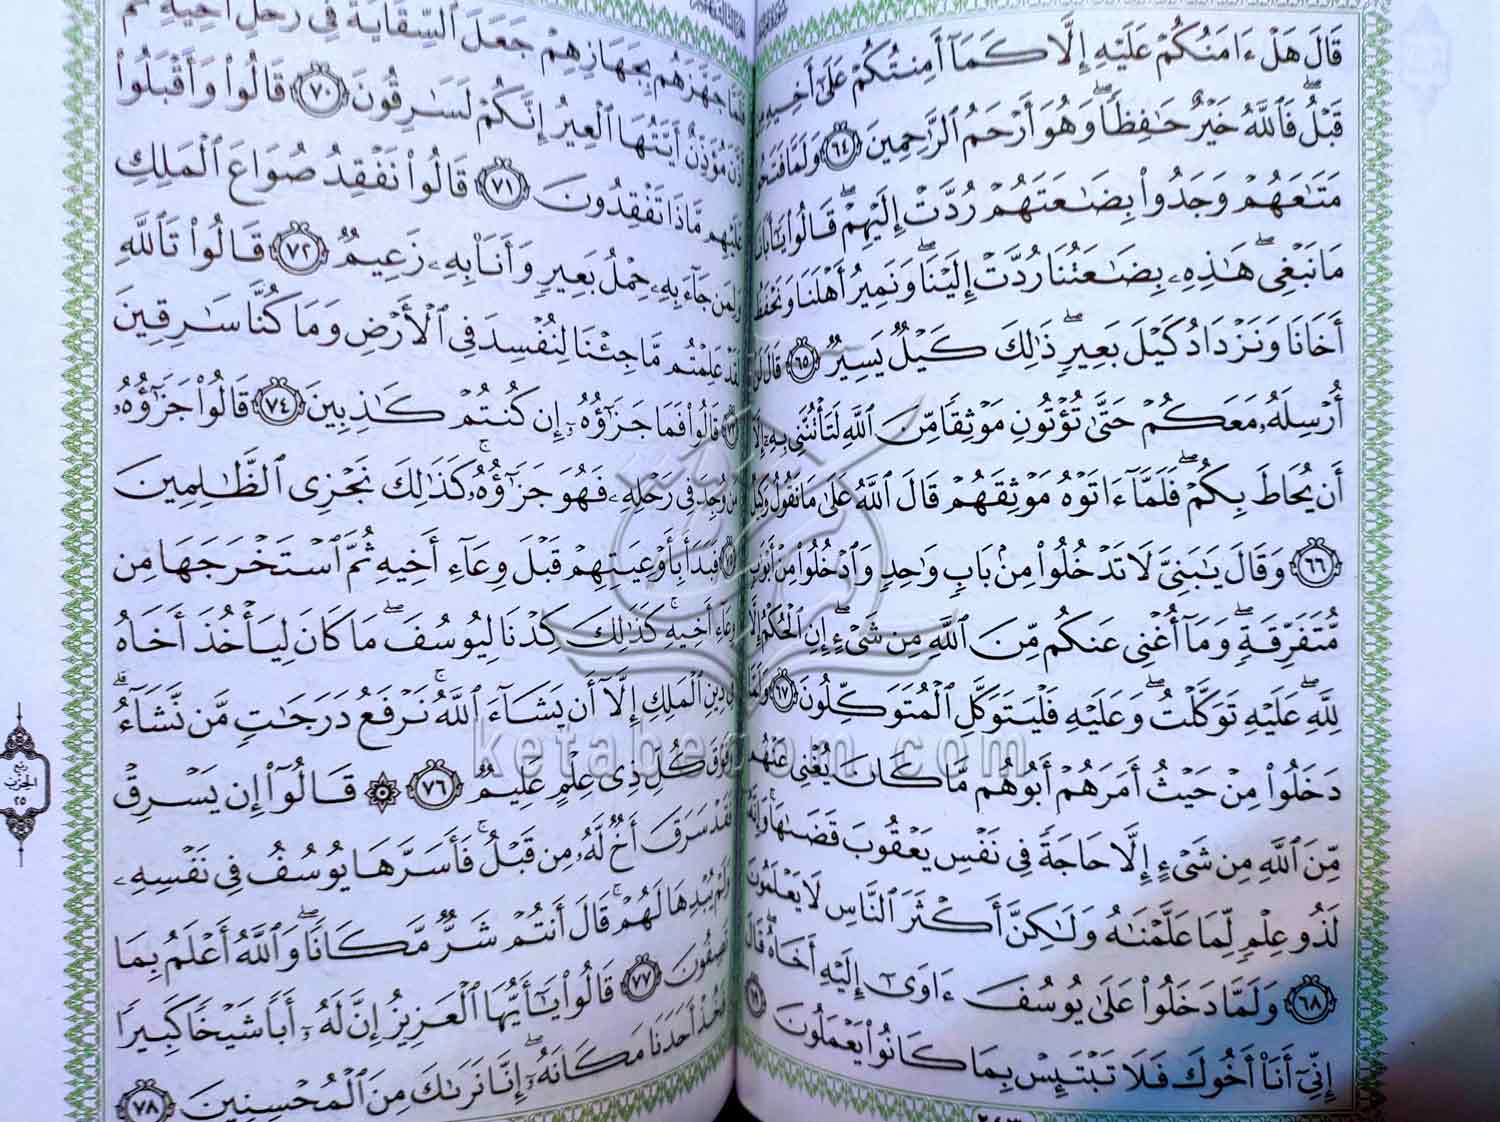 قَالَ هَلْ ءَامَنُكُمْ عَلَيْهِ إِلَّا كَمَآ أَمِنتُكُمْ عَلَىٰٓ أَخِيهِ مِن
قَبْلُ ۖ فَٱللَّهُ خَيْرٌ حَـٰفِظًا ۖ وَهُوَ أَرْحَمُ ٱلرَّٰحِمِينَ ٦٤ وَلَمَّا فَتَحُوا۟
مَتَـٰعَهُمْ وَجَدُوا۟ بِضَـٰعَتَهُمْ رُدَّتْ إِلَيْهِمْ ۖ قَالُوا۟ يَـٰٓأَبَانَا
مَا نَبْغِى ۖ هَـٰذِهِۦ بِضَـٰعَتُنَا رُدَّتْ إِلَيْنَا ۖ وَنَمِيرُ أَهْلَنَا وَنَحْفَظُ
أَخَانَا وَنَزْدَادُ كَيْلَ بَعِيرٍ ۖ ذَٰلِكَ كَيْلٌ يَسِيرٌ ٦٥ قَالَ لَنْ
أُرْسِلَهُۥ مَعَكُمْ حَتَّىٰ تُؤْتُونِ مَوْثِقًا مِّنَ ٱللَّهِ لَتَأْتُنَّنِى بِهِۦٓ إِلَّآ
أَن يُحَاطَ بِكُمْ ۖ فَلَمَّآ ءَاتَوْهُ مَوْثِقَهُمْ قَالَ ٱللَّهُ عَلَىٰ مَا نَقُولُ وَكِيلٌ
٦٦ وَقَالَ يَـٰبَنِىَّ لَا تَدْخُلُوا۟ مِنۢ بَابٍ وَٰحِدٍ وَٱدْخُلُوا۟ مِنْ أَبْوَٰبٍ
مُّتَفَرِّقَةٍ ۖ وَمَآ أُغْنِى عَنكُم مِّنَ ٱللَّهِ مِن شَىْءٍ ۖ إِنِ ٱلْحُكْمُ إِلَّا
لِلَّهِ ۖ عَلَيْهِ تَوَكَّلْتُ ۖ وَعَلَيْهِ فَلْيَتَوَكَّلِ ٱلْمُتَوَكِّلُونَ ٦٧ وَلَمَّا
دَخَلُوا۟ مِنْ حَيْثُ أَمَرَهُمْ أَبُوهُم مَّا كَانَ يُغْنِى عَنْهُم
مِّنَ ٱللَّهِ مِن شَىْءٍ إِلَّا حَاجَةً فِى نَفْسِ يَعْقُوبَ قَضَىٰهَا ۚ وَإِنَّهُۥ
لَذُو عِلْمٍ لِّمَا عَلَّمْنَـٰهُ وَلَـٰكِنَّ أَكْثَرَ ٱلنَّاسِ لَا يَعْلَمُونَ
٦٨ وَلَمَّا دَخَلُوا۟ عَلَىٰ يُوسُفَ ءَاوَىٰٓ إِلَيْهِ أَخَاهُ ۖ قَالَ
إِنِّىٓ أَنَا۠ أَخُوكَ فَلَا تَبْتَئِسْ بِمَا كَانُوا۟ يَعْمَلُونَ ٦٩
فَلَمَّا جَهَّزَهُم بِجَهَازِهِمْ جَعَلَ ٱلسِّقَايَةَ فِى رَحْلِ أَخِيهِ ثُمَّ
أَذَّنَ مُؤَذِّنٌ أَيَّتُهَا ٱلْعِيرُ إِنَّكُمْ لَسَـٰرِقُونَ ٧٠ قَالُوا۟ وَأَقْبَلُوا۟
عَلَيْهِم مَّاذَا تَفْقِدُونَ ٧١ قَالُوا۟ نَفْقِدُ صُوَاعَ ٱلْمَلِكِ
وَلِمَن جَآءَ بِهِۦ حِمْلُ بَعِيرٍ وَأَنَا۠ بِهِۦ زَعِيمٌ ٧٢ قَالُوا۟ تَٱللَّهِ
لَقَدْ عَلِمْتُم مَّا جِئْنَا لِنُفْسِدَ فِى ٱلْأَرْضِ وَمَا كُنَّا سَـٰرِقِينَ
٧٣ قَالُوا۟ فَمَا جَزَٰٓؤُهُۥٓ إِن كُنتُمْ كَـٰذِبِينَ ٧٤ قَالُوا۟ جَزَٰٓؤُهُۥ
مَن وُجِدَ فِى رَحْلِهِۦ فَهُوَ جَزَٰٓؤُهُۥ ۚ كَذَٰلِكَ نَجْزِى ٱلظَّـٰلِمِينَ
٧٥ فَبَدَأَ بِأَوْعِيَتِهِمْ قَبْلَ وِعَآءِ أَخِيهِ ثُمَّ ٱسْتَخْرَجَهَا مِن
وِعَآءِ أَخِيهِ ۚ كَذَٰلِكَ كِدْنَا لِيُوسُفَ ۖ مَا كَانَ لِيَأْخُذَ أَخَاهُ
فِى دِينِ ٱلْمَلِكِ إِلَّآ أَن يَشَآءَ ٱللَّهُ ۚ نَرْفَعُ دَرَجَـٰتٍ مَّن نَّشَآءُ ۗ
وَفَوْقَ كُلِّ ذِى عِلْمٍ عَلِيمٌ ٧٦ ۞ قَالُوٓا۟ إِن يَسْرِقْ
فَقَدْ سَرَقَ أَخٌ لَّهُۥ مِن قَبْلُ ۚ فَأَسَرَّهَا يُوسُفُ فِى نَفْسِهِۦ
وَلَمْ يُبْدِهَا لَهُمْ ۚ قَالَ أَنتُمْ شَرٌّ مَّكَانًا ۖ وَٱللَّهُ أَعْلَمُ بِمَا
تَصِفُونَ ٧٧ قَالُوا۟ يَـٰٓأَيُّهَا ٱلْعَزِيزُ إِنَّ لَهُۥٓ أَبًا شَيْخًا كَبِيرًا
فَخُذْ أَحَدَنَا مَكَانَهُۥٓ ۖ إِنَّا نَرَىٰكَ مِنَ ٱلْمُحْسِنِينَ ٧٨
ربع
الحزب
٢٥
ketaberom.com